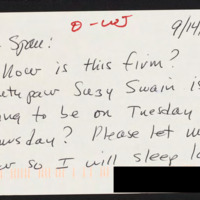 O-WJ 9/14/
Now is this firm?
thpaw Suzy Swain is
ing to be on Tuesday
ursday? Please let m
ow so I will sleep la